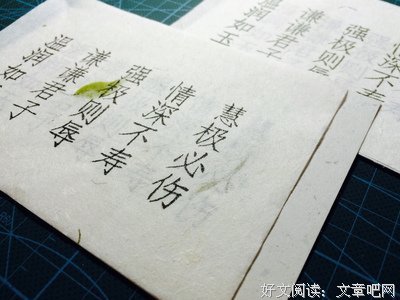 慧极必伤
情深不寿
强极则辱
谦谦君子
温润如
情深不寿
强极则辱
谦谦君子
温润如玉
好文阅读：文章吧网